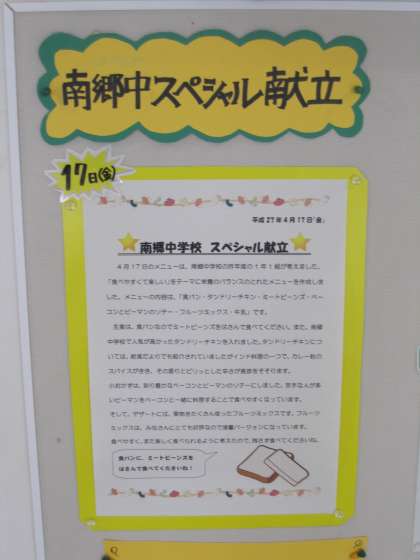 南郷中スペシャル献立
17日(金)
平成27年4月17日「金」
南郷中学校 スペシャル献立
4月17日のメニューは、南郷中学校の昨年度の1年1組が考えました。
「食べやすくて楽しい」をテーマに栄養のバランスのとれたメニューを作成しま
した。メニューの内容は、「食パン・タンドリーチキン・ミートビーンズ・ベー
コンとピーマンのソテー・フルーツミックス・牛乳」です。
主食は、食パンなのでミートビーンズをはさんで食べてください。また、南郷
中学校で人気が高かったタンドリーチキンを入れました。タンドリーチキンにつ
いては、給食だよりでも紹介されていましたがインド料理の一つで、カレー粉の
スパイスがきき、その香りとピリッとした辛さが食欲をそそります。
小おかずは、彩り豊かなベーコンとピーマンのソテーにしました。苦手な人が多
いピーマンをベーコンと一緒に料理することで食べやすくなっています。
そして、デザートには、果物をたくさん使ったフルーツミックスです。フルーツ
ミックスは、みなさんにとても好評なので増量バージョンになっています。
食べやすく、また楽しく食べられるように考えたので、残さず食べてくださいね。
食パンに、ミートビーンズを
はさんで食べてくださいね！